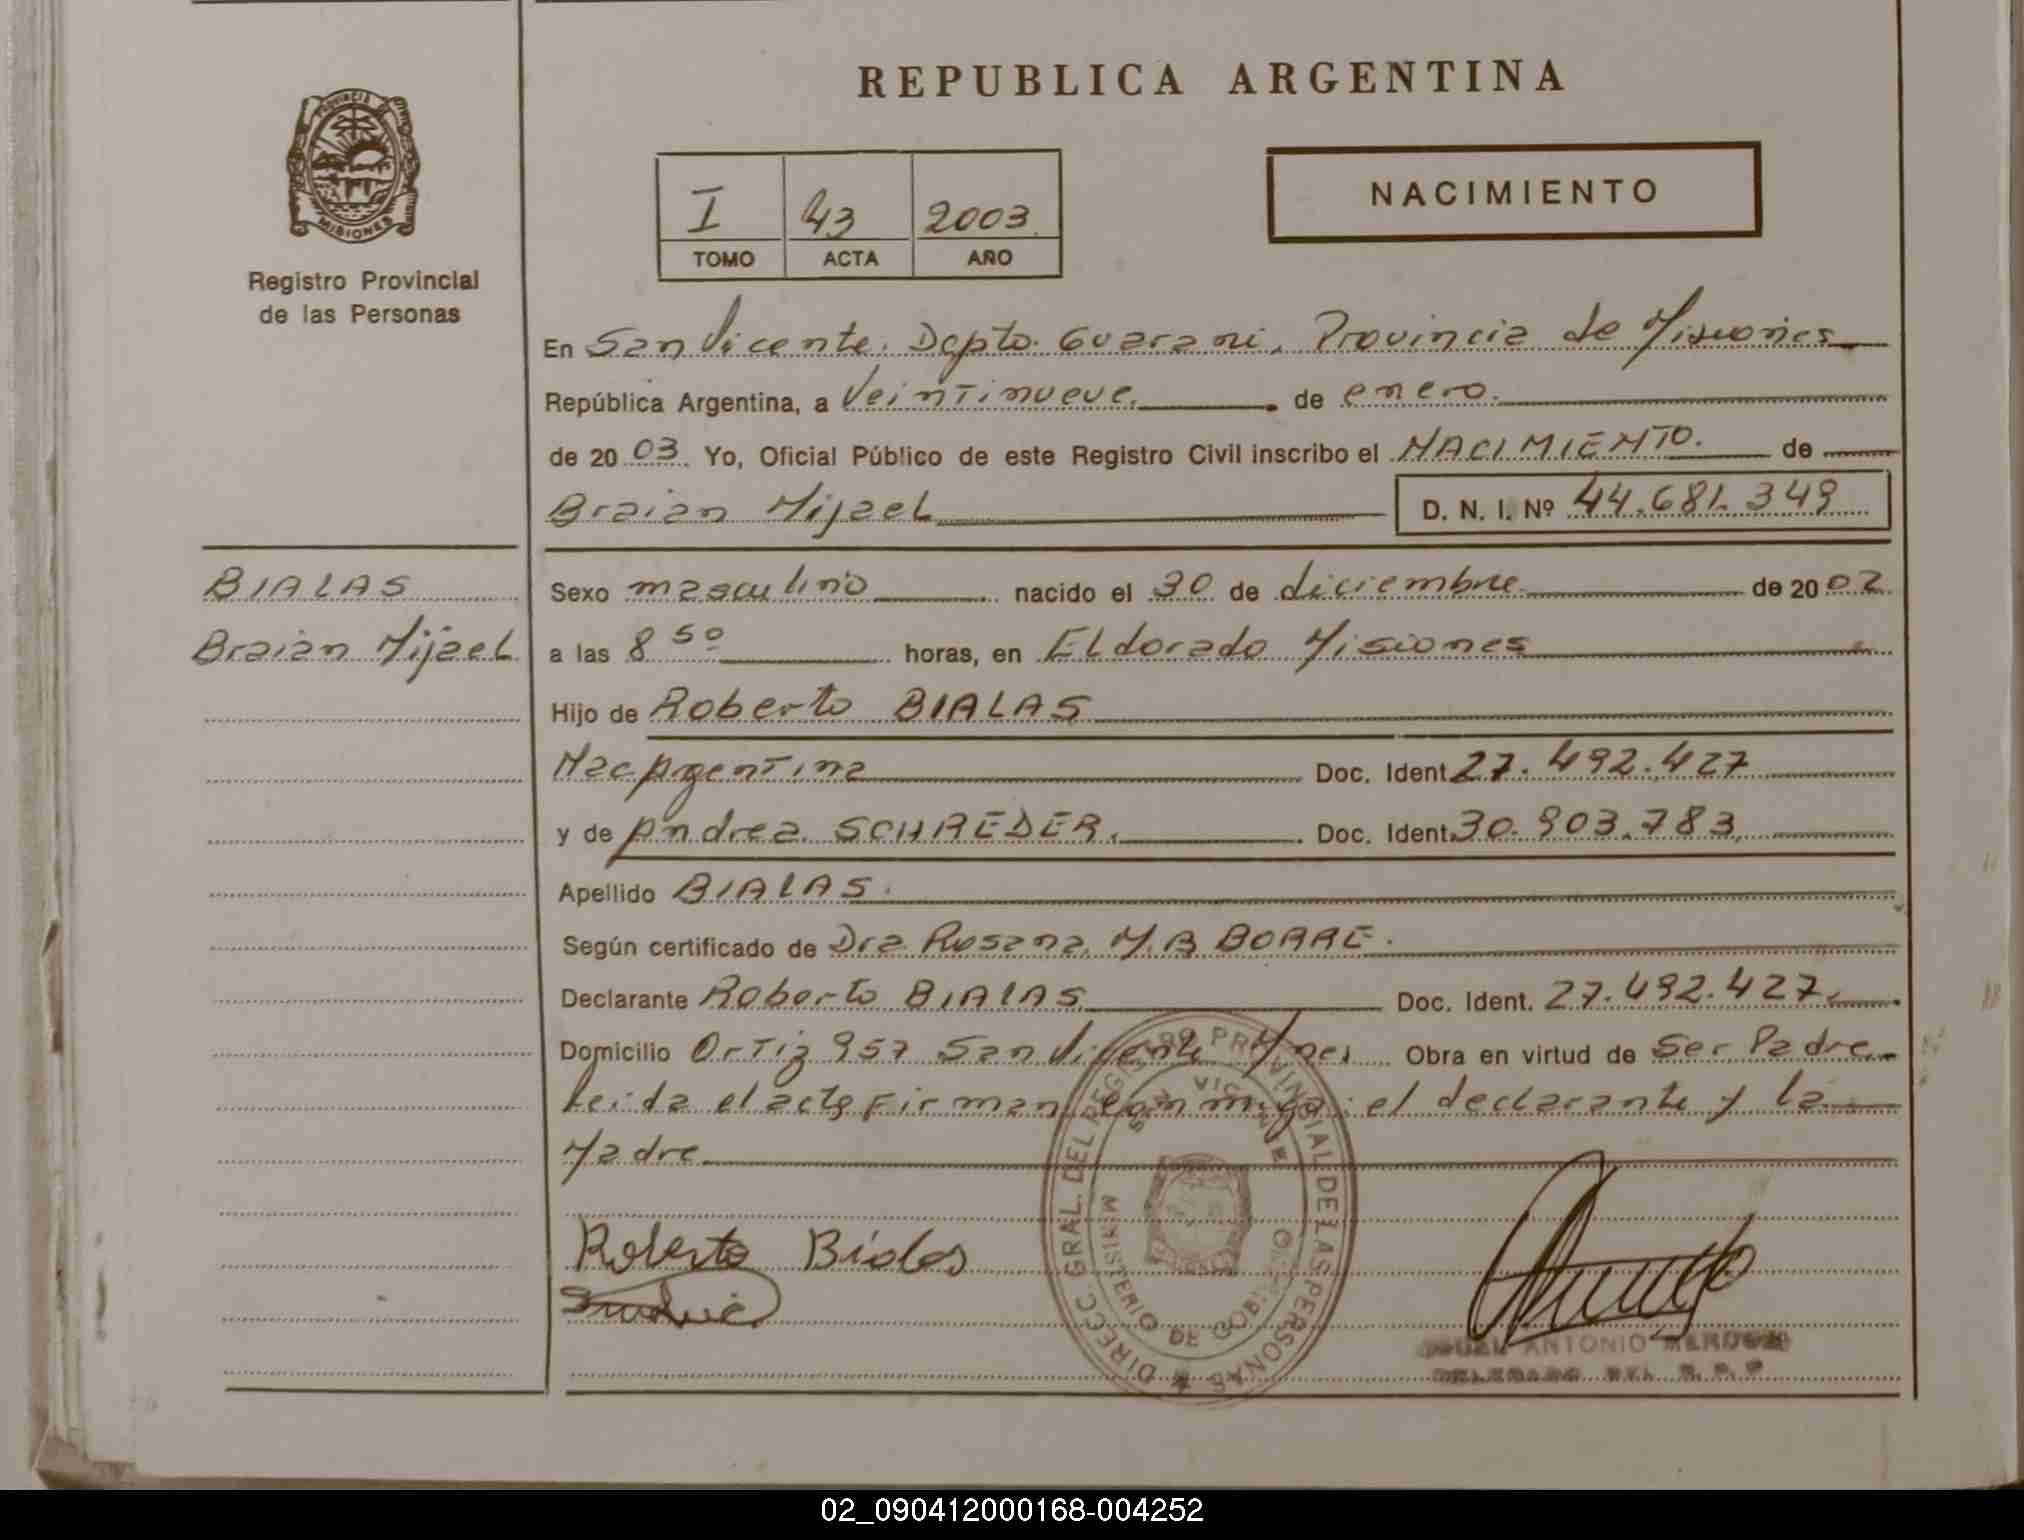 REPUBLICA ARGENTINA
PROVINCIA DE
MISIONES
Registro Provincial
de las Personas
I 43 2003
TOMO ACTA AÑO
NACIMIENTO
En San Vicente. Depto. Guarani, Provincia de Misiones
República Argentina, a Veintinueve. de enero.
de 20 03. Yo, Oficial Público de este Registro Civil inscribo el NACIMIENTO. de
Braian Mijael D. N. I. Nº 44.681.349
BIALAS
Braian Mijael
Sexo masculino nacido el 30 de diciembre de 20 02
a las 8 50 horas, en Eldorado Misiones
Hijo de Roberto BIALAS
Nac Argentina Doc. Ident. 27.492.427
y de Andrea SCHREDER. Doc. Ident. 30.903.783
Apellido BIALAS.
Según certificado de Dra Rosana M.B BORRE.
Declarante Roberto BIALAS Doc. Ident. 27.492.427.
Domicilio Ortiz 957 San Vicente Mnes Obra en virtud de Ser Padre
Leida el acta Firman conmigo: el declarante y la
Madre
Roberto Bialas
DIRECC. GRAL. DEL REGISTRO PROVINCIAL DE LAS PERSONAS
SAN VICENTE
MINISTERIO DE GOBIERNO
ANTONIO
DELEGADO DEL R.P.P
02_090412000168-004252